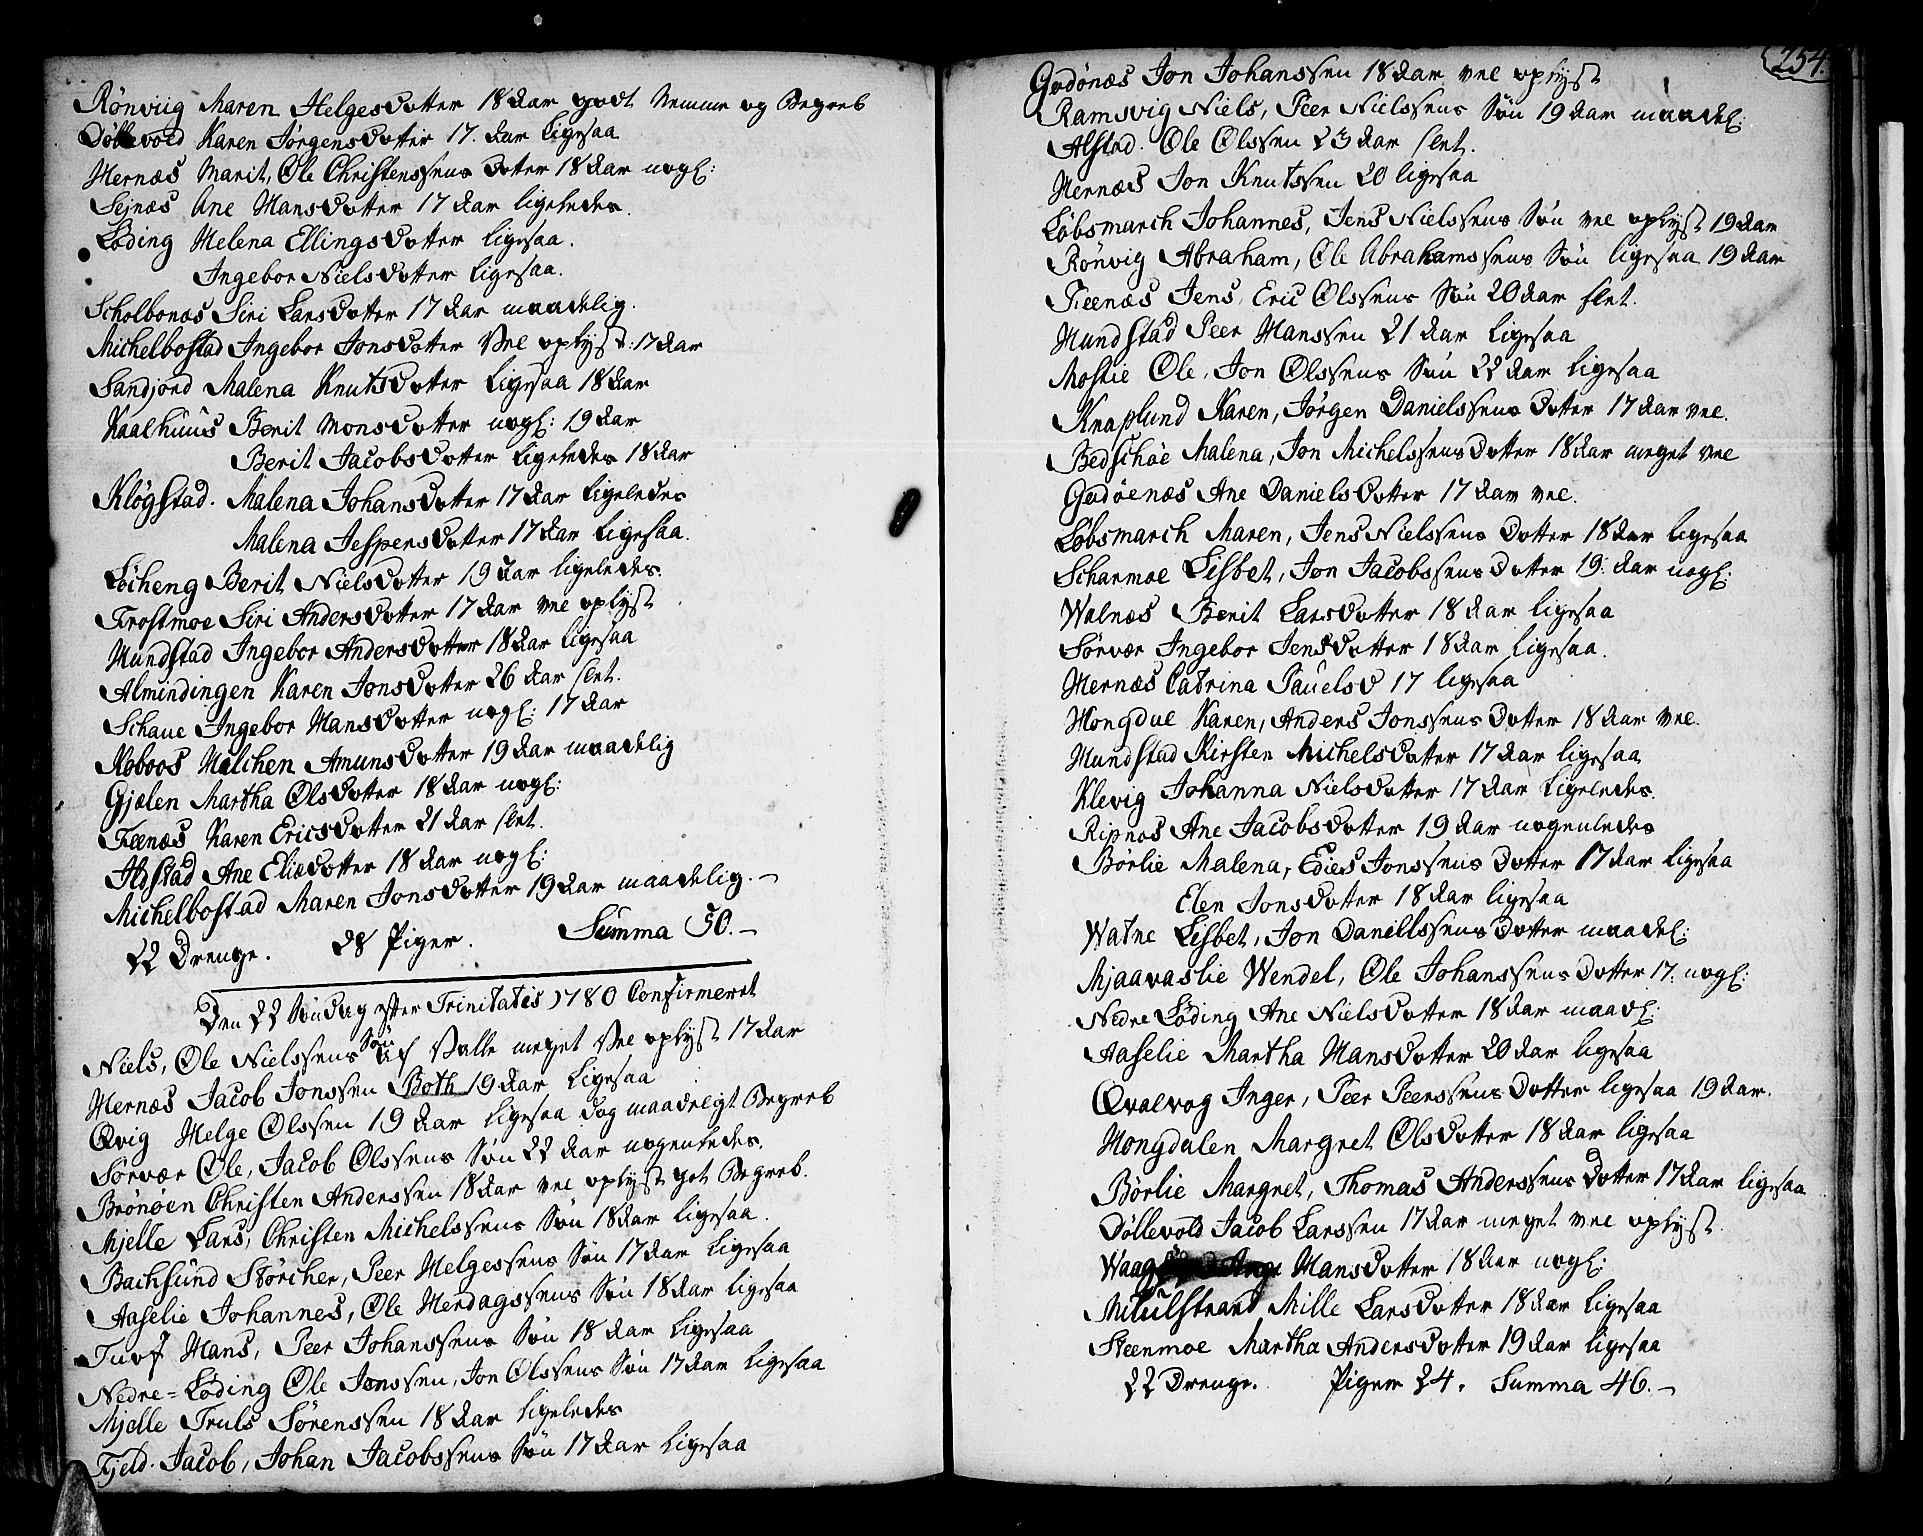 Rönviig Maren Helgesdotter 18 Aar godt Nemme og Begreb
Döllevold Karen Jørgensdotter 17. Aar ligesaa
Hernæs Marit, Ole Christenssens Doter 18 Aar nogl:
Sejnæs Ane Hansdotter 17 Aar ligeledes.
Løding Helena Ellingsdotter ligesaa.
Ingebor Nielsdotter ligesaa.
Scholbonæs Siri Larsdotter 17 Aar maadelig.
Michelbostad Ingebor Jonsdotter vel oplyst: 17 Aar
Sandjord Malena Knutsdotter ligesaa 18 Aar
Kaalhuus Berit Monsdotter nogl: 19 Aar
Berit Jacobsdotter ligeledes 18 Aar
Kløgstad. Malena Johansdotter 17 Aar ligeledes
Malena Jespersdotter 17 Aar ligesaa.
Løcheng Berit Nielsdotter 19 Aar ligeledes.
Frostmoe Siri Andersdotter 17 Aar vel oplyst
Hundstad Ingebor Andersdotter 18 Aar ligesaa
Almindingen Karen Jonsdotter 26 Aar slet.
Schaue Ingebor Hansdotter nogl: 17 Aar
Koboos Melchen Amunsdotter 19 Aar maadelig
Gjælen Martha Olsdotter 18 Aar nogl:
Feenæs Karen Ericsdotter 21 Aar slet.
Ildstad Ane Eliædotter 18 Aar nogl:
Michelbostad Maren Jonsdotter 19 Aar maadelig.-
22 Drenge. 28 Piger. Summa 50.-
Den 22 Søndag efter Trinitatis 1780 Confirmeret
Niels, Ole Nielssens Søn af Valle meget vel oplyst 17 Aar
Hernæs Jacob Jonssen Both 19 Aar ligesaa
Qvig Helge Olssen 19 Aar ligesaa dog maadeligt Begreb
Sørvær Ole, Jacob Olssens Søn 22 Aar nogenledes.
Brönöen Christen Anderssen 18 Aar vel oplyst got Begreb.
Mjelle Lars, Christen Michelssens Søn 18 Aar ligesaa.
Bachsund Störcher, Peer Helgessens Søn 17 Aar ligesaa
Aaselie Johannes, Ole Herdagssens Søn 18 Aar ligesaa
Tuv Hans, Peer Johanssens Søn 18 Aar ligesaa
Nedre=Løding Ole Jonssen, Jon Olssens Søn 17 Aar ligesaa
Mjelle Truls Sørenssen 18 Aar ligeledes
Fjeld. Jacob, Johan Jacobssens Søn 17 Aar ligesaa
254.
Godönæs Jon Johanssen 18 Aar vel oplyst
Ramsvig Niels, Peer Nielssens Søn 19 Aar maadel:
Alstad. Ole Olssen 23 Aar slet.
Hernæs Jon Knutssen 20 ligesaa
Løbsmarch Johannes, Jens Nielssens Søn vel oplyst 19 Aar
Rönvig Abraham, Ole Abrahamssens Søn ligesaa 19 Aar
Feenæs Jens, Eric Olssens Søn 20 Aar slet.
Hundstad Peer Hanssen 21 Aar ligesaa
Moslie Ole, Jon Olssens Søn 22 Aar ligesaa
Knaplund Karen, Jørgen Danielssens Dotter 17 Aar vel.
Bedschöe Malena, Jon Michelssens Dotter 18 Aar meget vel
Godöenæs Ane Danielsdotter 17 Aar vel.
Løbsmarch Maren, Jens Nielssens Dotter 18 Aar ligesaa
Scharmoe Lisbet, Jon Jacobssens Dotter 19: Aar nogl:
Walnæs Berit Larsdotter 18 Aar ligesaa
Sørvær Ingebor Jensdotter 18 Aar ligesaa.
Hernæs Catrina Pauelsd 17 ligesaa
Hongdal Karen, Anders Jonssens Dotter 18 Aar vel.
Hundstad Kirsten Michelsdotter 17 Aar ligesaa
Klevig Johanna Nielsdotter 17 Aar ligeledes.
Ripnæs Ane Jacobsdotter 19 Aar nogenledes
Börlie Malena, Edies Jonssens Dotter 17 Aar ligesaa
Elen Jonsdotter 18 Aar ligesaa
Watne Lisbet, Jon Daniellssens Dotter maadel:
Mjaavaslie Wendel, Ole Johanssens Dotter 17. nogl:
Nedre Løding Ane Nielsdotter 18 Aar maadl:
Aaselie Martha Hansdotter 20 Aar ligesaa
Qvalvog Inger, Peer Peerssens Dotter ligesaa 19 Aar.
Hongdalen Margret Olsdotter 18 Aar ligesaa
Börlie Margret, Thomas Anderssens Dotter 17 Aar ligesaa
Döllevold Jacob Larssen 17 Aar meget vel oplyst.
Waag Hansdotter 18 Aar nogl:
Mitulstrand Mille Larsdotter 18 Aar ligesaa
Steenmoe Martha Andersdotter 19 Aar ligesaa
22 Drenge. Piger 24. Summa 46.-